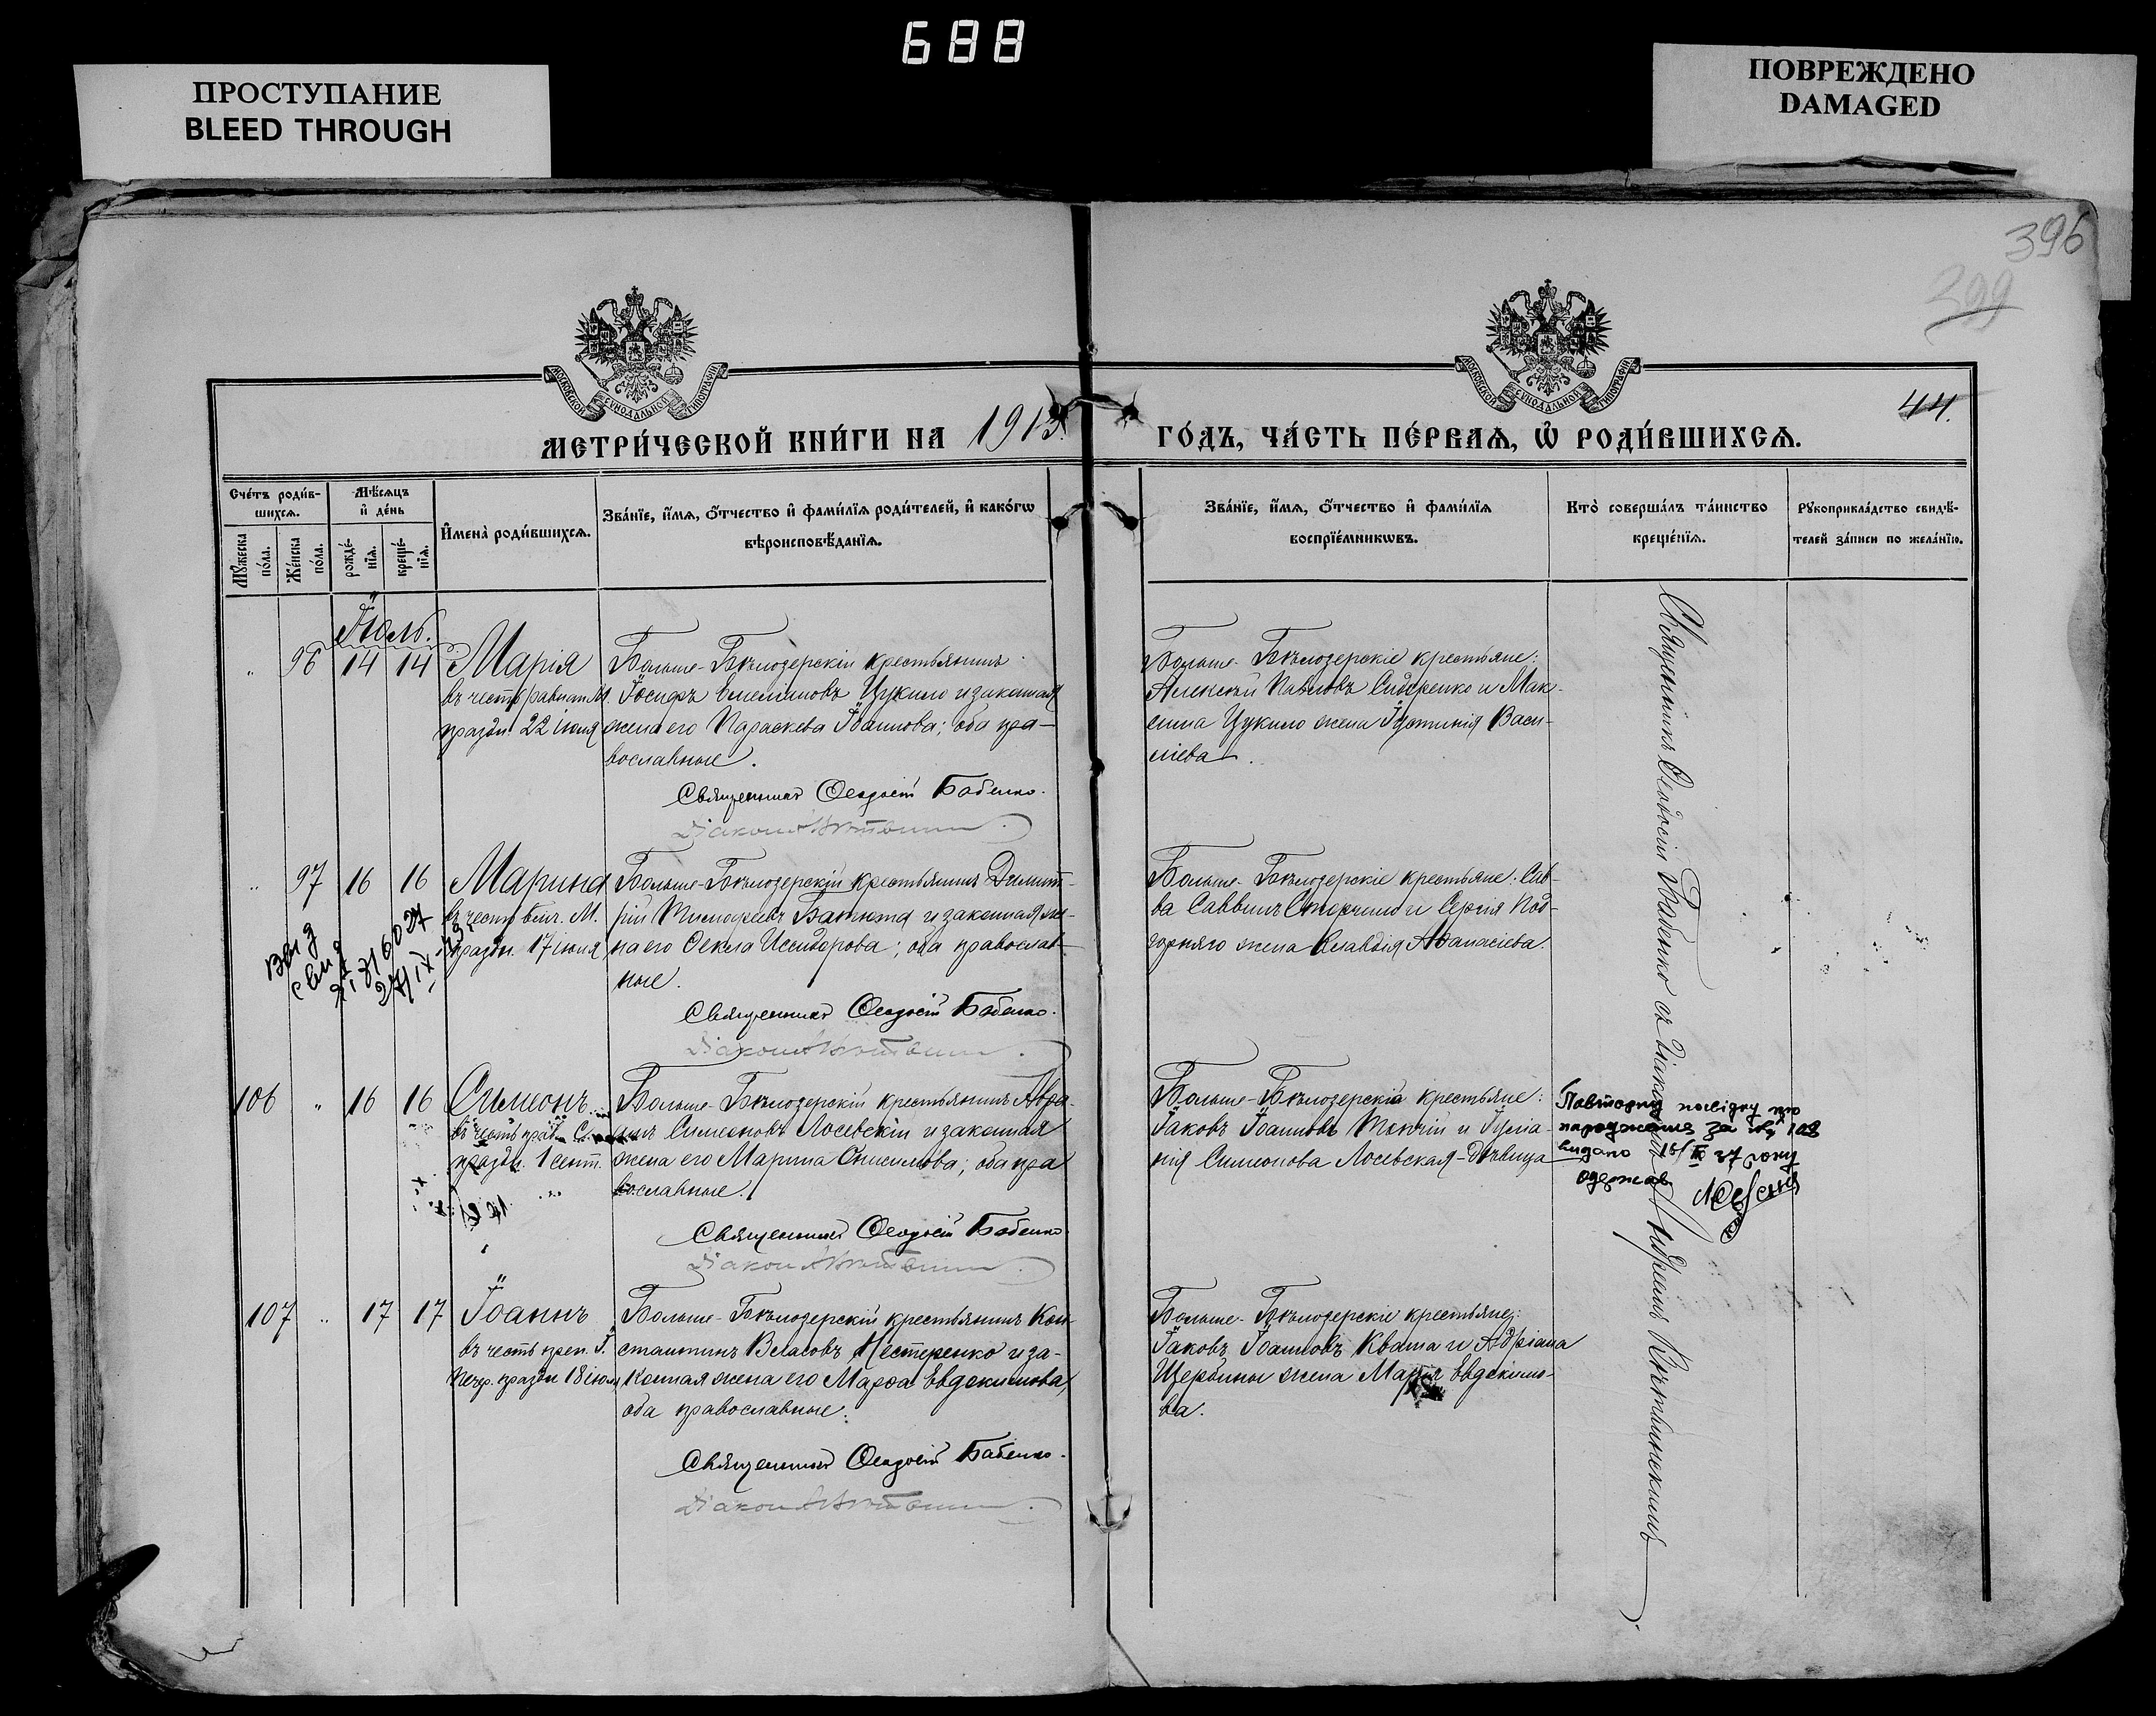 688
ПРОСТУПАНИЕ
BLEED THROUGH
ПОВРЕЖДЕНО
DAMAGED
396
399
44.
МОСКОВСКОЙ СѴНОДАЛЬНОЙ ТИПОГРАФІИ
МОСКОВСКОЙ СѴНОДАЛЬНОЙ ТИПОГРАФІИ
МЕТРИ́ЧЕСКОЙ КНИ́ГИ НА 1913.
ГО́ДЪ, ЧА́СТЬ ПЕ́РВАѦ, Ѽ РОДИ́ВШИХСѦ.
Сче́тъ роди́в-
шихсѧ.
Мꙋ́жеска по́ла.
Же́нска по́ла.
Мѣ́сѧцъ
и҆ де́нь
рожде́-
нїѧ.
креще́-
нїѧ.
И҆мена̀ роди́вшихсѧ.
Зва́нїе, и҆́мѧ, ѻ҆́тчество и҆ фами́лїѧ роди́телей, и҆ како́гѡ
вѣроисповѣ́данїѧ.
Зва́нїе, и҆́мѧ, ѻ҆́тчество и҆ фами́лїѧ
воспрїе́мникѡвъ.
Кто̀ соверша́лъ та́инство
креще́нїѧ.
Рꙋкоприкла́дство свидѣ́-
телей за́писи по жела́нїю.
Іюль.
" 96 14 14 Марія
въ честь равноап. М.
празд. 22 июля
Больше-Бѣлозерскій крестьянинъ
Іосифъ Емеліановъ Цукило и законная
жена его Параскева Іоаннова; оба пра-
вославные.
Священникъ Ѳеодосій Бабенко.
Діаконъ
Больше-Бѣлозерскіе крестьяне:
Алексѣй Павловъ Сидоренко и Мак-
сима Цукило жена Іустинія Васи-
ліева.
" 97 16 16 Марина
въ честь вмч. М.
празд. 17 іюля
Больше-Бѣлозерскій крестьянинъ Димит-
рій Тимофеевъ Батюта и законная же-
на его Ѳекла Исидорова; оба православ-
ные.
Священникъ Ѳеодосій Бабенко.
Діаконъ
Больше-Бѣлозерскіе крестьяне: Сав-
ва Саввинъ и Сергія Под-
горняго жена Клавдія Аѳанасіева.
106 " 16 16 Симеонъ
въ честь прав.
празд. 1 сент.
Больше-Бѣлозерскій крестьянинъ Авра-
мъ Симеоновъ Лосевскій и законная
жена его Марина Онисимова; оба пра
вославные.
Священникъ Ѳеодосій Бабенко
Діаконъ
Больше-Бѣлозерскіе крестьяне:
Іаковъ Іоанновъ и Іуліа-
нія Симеонова Лосевская-дѣвица
Повторну посвідку про
народження за № 106
видано 16/IX 37 року
одержав
107 " 17 17 Іоаннъ
въ честь преп. І.
Печер. празд. 18 іюля
Больше-Бѣлозерскій крестьянинъ Кон-
стантинъ Власовъ Нестеренко и за-
конная жена его Марѳа Евдокимова,
оба православные.
Священникъ Ѳеодосій Бабенко.
Діаконъ
Больше-Бѣлозерскіе крестьяне:
Іаковъ Іоанновъ Кваша и Адріана
Щербины жена Марія Евдокимо-
ва.
Священникъ Ѳеодосій Бабенко съ діакономъ Андреемъ